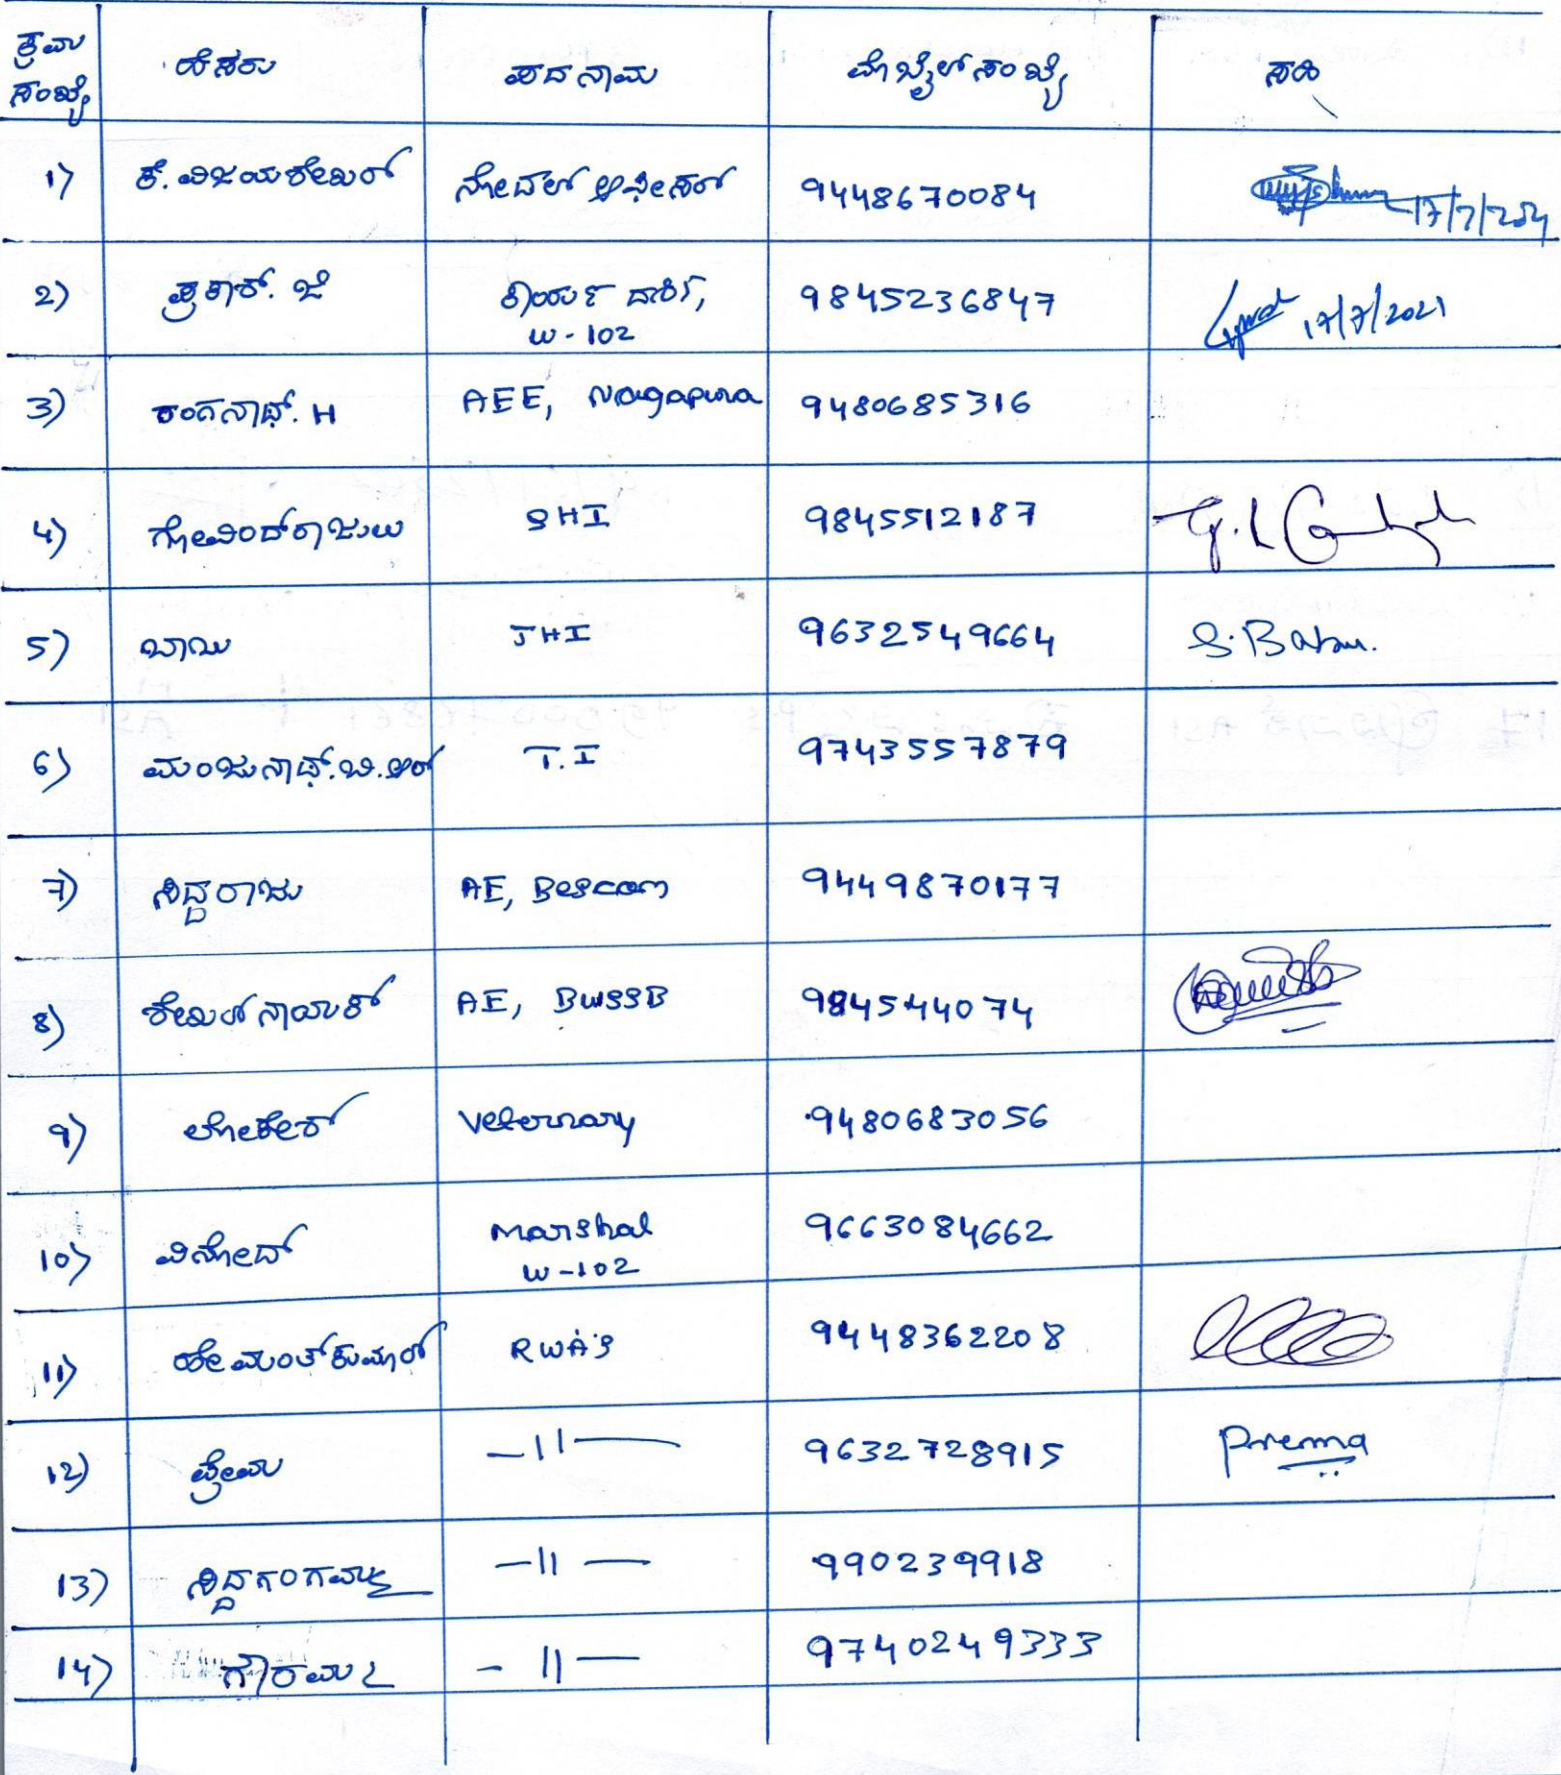 ಕ್ರಮ ಸಂಖ್ಯೆ ಹೆಸರು ಪದನಾಮ ಮೊಬೈಲ್ ಸಂಖ್ಯೆ ಸಹಿ
1) ಕೆ. ವಿಜಯಶೇಖರ್ ನೋಡಲ್ ಆಫೀಸರ್ 9448670084 17/7/2021
2) ಪ್ರಕಾಶ್. ಜೆ 9845236847 17/7/2021
W-102
3) ರಂಗನಾಥ್. H AEE, Nagapura 9480685316
4) ಗೋವಿಂದ್‌ರಾಜುಲು SHI 9845512187
5) ಬಾಬು JHI 9632549664 S. Babu.
6) ಮಂಜುನಾಥ್.ಬಿ.ಆರ್ T.I 9743557879
7) ಸಿದ್ದರಾಜು AE, Bescom 9449870177
8) AE, BWSSB 984544074
9) ಲೋಕೇಶ್ Veterinary 9480683056
10) ವಿನೋದ್ Marshal 9663084662
W-102
11) ಹೇಮಂತ್ ಕುಮಾರ್ RWA'S 9448362208
12) ಪ್ರೇಮ —11— 9632728915 Prema
13) ಸಿದ್ದಗಂಗಮ್ಮ —11— 990239918
14) ಗೌರಮ್ಮ —11— 9740249333